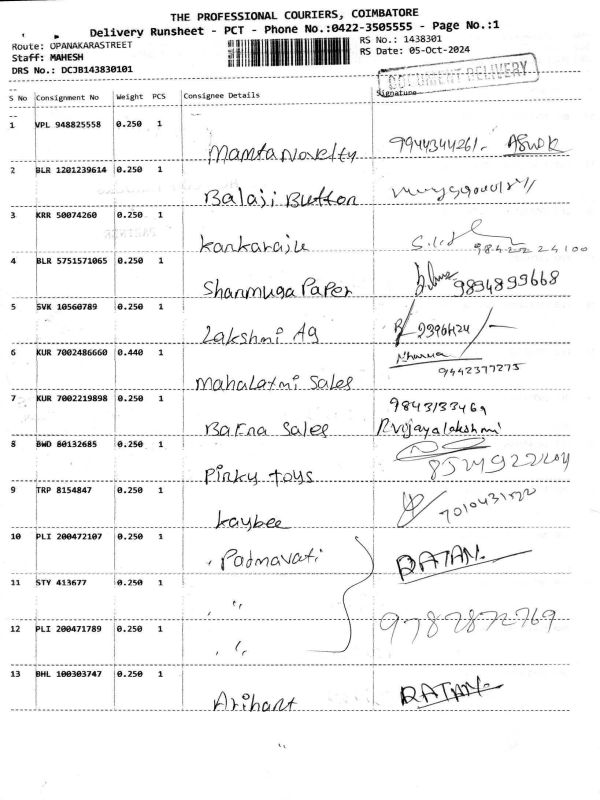 THE PROFESSIONAL COURIERS, COIMBATORE
Delivery Runsheet - PCT - Phone No.:0422-3505555 - Page No.:1
Route: OPANAKARASTREET
RS No.: 1438301
Staff: MAHESH
RS Date: 05-Oct-2024
DRS No.: DCJB143830101
DOCUMENT DELIVERY
S No Consignment No Weight PCS Consignee Details Signature
1 VPL 948825558 0.250 1
Mamta Novelty 9944344261- ASHOK
2 BLR 1201239614 0.250 1
Balaji Button
3 KRR 50074260 0.250 1
Kankaraju
4 BLR 5751571065 0.250 1
Shanmuga Paper 9894899668
5 SVK 10560789 0.250 1
Lakshmi Ag
6 KUR 7002486660 0.440 1
Mahalaxmi Sales 9442377275
7 KUR 7002219898 0.250 1
9843133469
Bafna Sales R.vijayalakshmi
8 BWD 80132685 0.250 1
Pinky toys
9 TRP 8154847 0.250 1
Kaybee
10 PLI 200472107 0.250 1
Padmavati RATAN.
11 STY 413677 0.250 1
"
12 PLI 200471789 0.250 1
" 9782872769
13 BHL 100303747 0.250 1
Arihant RATAN.